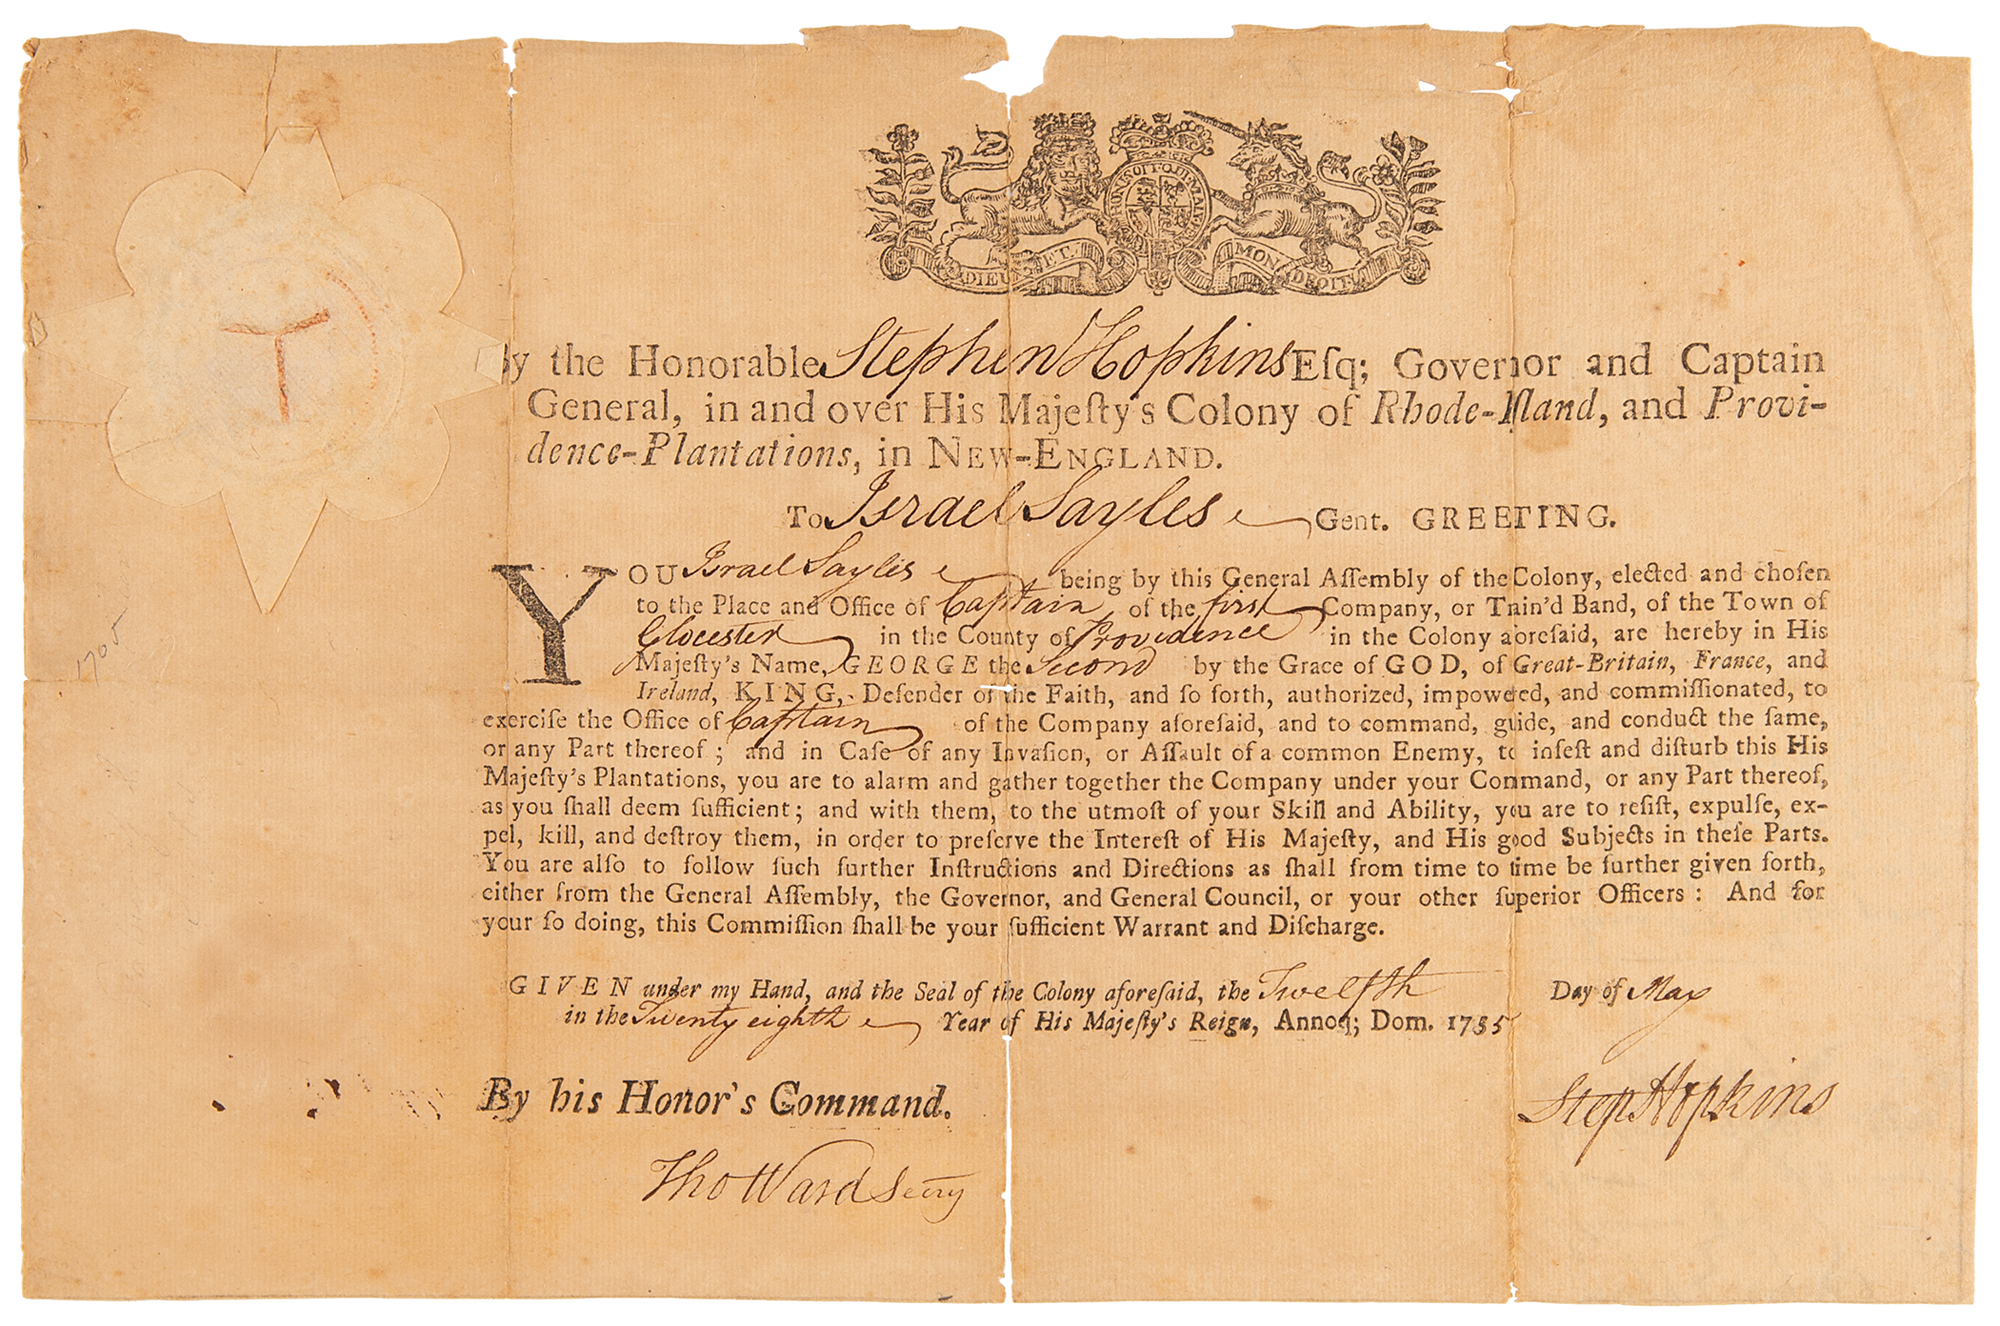 HONI SOIT QUI MAL Y
DIEU ET MON DROIT
By the Honorable Stephen Hopkins Eſq; Governor and Captain
General, in and over His Majeſty's Colony of Rhode-Iſland, and Provi-
dence-Plantations, in NEW-ENGLAND.
To Israel Sayles Gent. GREETING.
YOU Israel Sayles being by this General Aſſembly of the Colony, elected and choſen
to the Place and Office of Captain of the first Company, or Train'd Band, of the Town of
Glocester in the County of Providence in the Colony aforeſaid, are hereby in His
Majeſty's Name, GEORGE the Second by the Grace of GOD, of Great-Britain, France, and
Ireland, KING, Defender of the Faith, and ſo forth, authorized, impowered, and commiſſionated, to
exerciſe the Office of Captain of the Company aforeſaid, and to command, guide, and conduct the ſame,
or any Part thereof; and in Caſe of any Invaſion, or Aſſault of a common Enemy, to infeſt and diſturb this His
Majeſty's Plantations, you are to alarm and gather together the Company under your Command, or any Part thereof,
as you ſhall deem ſufficient; and with them, to the utmoſt of your Skill and Ability, you are to reſiſt, expulſe, ex-
pel, kill, and deſtroy them, in order to preſerve the Intereſt of His Majeſty, and His good Subjects in theſe Parts.
You are alſo to follow ſuch further Inſtructions and Directions as ſhall from time to time be further given forth,
either from the General Aſſembly, the Governor, and General Council, or your other ſuperior Officers: And for
your ſo doing, this Commiſſion ſhall be your ſufficient Warrant and Diſcharge.
GIVEN under my Hand, and the Seal of the Colony aforeſaid, the Twelfth Day of May
in the Twenty eighth Year of His Majeſty's Reign, Annoq; Dom. 1755
By his Honor's Command.
Step Hopkins
Tho Ward Secry
1705